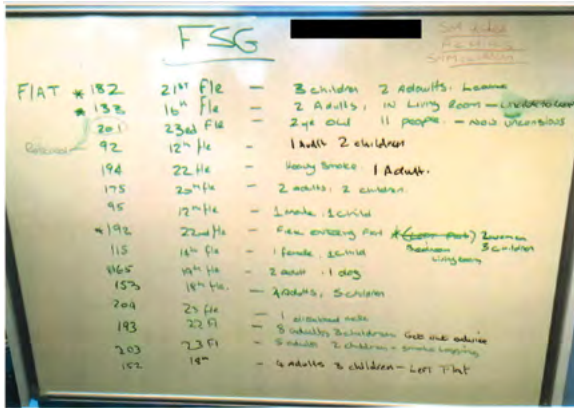 FSG
FLAT * 182 21st Fle - 3 children 2 Adults,
* 133 16th Fle - 2 Adults, IN Living Room -
201 23rd Fle 2 ye old 11 people. - Now unconsious
92 12th fle - 1 Adult 2 children
194 22 fle - Heavy Smoke 1 Adult.
175 20th fle - 2 adults, 2 children.
95 12th fle - 1 male, 1 child
*192 22nd fle - entering flat 2 women
Bedroom 3 children
115 fle - 1 female, 1 child
165 19th fle - 2 adult 1 dog
153 18th fle. - Adults, 5 children
204 23 fle - 1 male
193 22 Fl - 8 adults 3 children Get out advice
203 23 Fl - 5 adults 2 children - smoke
152 18th - 4 Adults 3 children - Left Flat